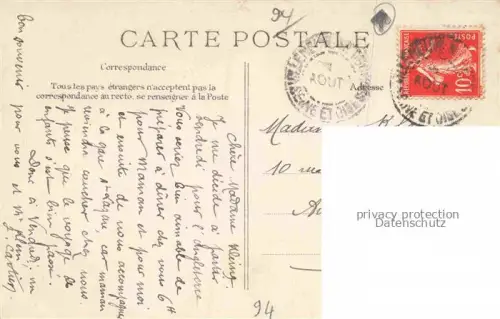 94
CARTE POSTALE
Correspondance
Tous les pays étrangers n'acceptent pas la
correspondance au recto, se renseigner à la Poste
Adresse
AOUT
SEINE ET OISE
AOUT
SEINE ET OISE
POSTES
10c
Chère Madame Kleing
Je me décide à partir
vendredi pour l'Angleterre
Vous seriez bien aimable de
préparer à dîner chez vous 6H
pour Maman et pour moi
et ensuite de nous accompagner
à la gare St Lazare car maman
viendra coucher chez vous
Je pense que le voyage de
enfants s'est bien passé.
Donc à Vendredi, un
bon souvenir pour vous et
J. Cartier
Madame K
10 rue
privacy protection
Datenschutz
94